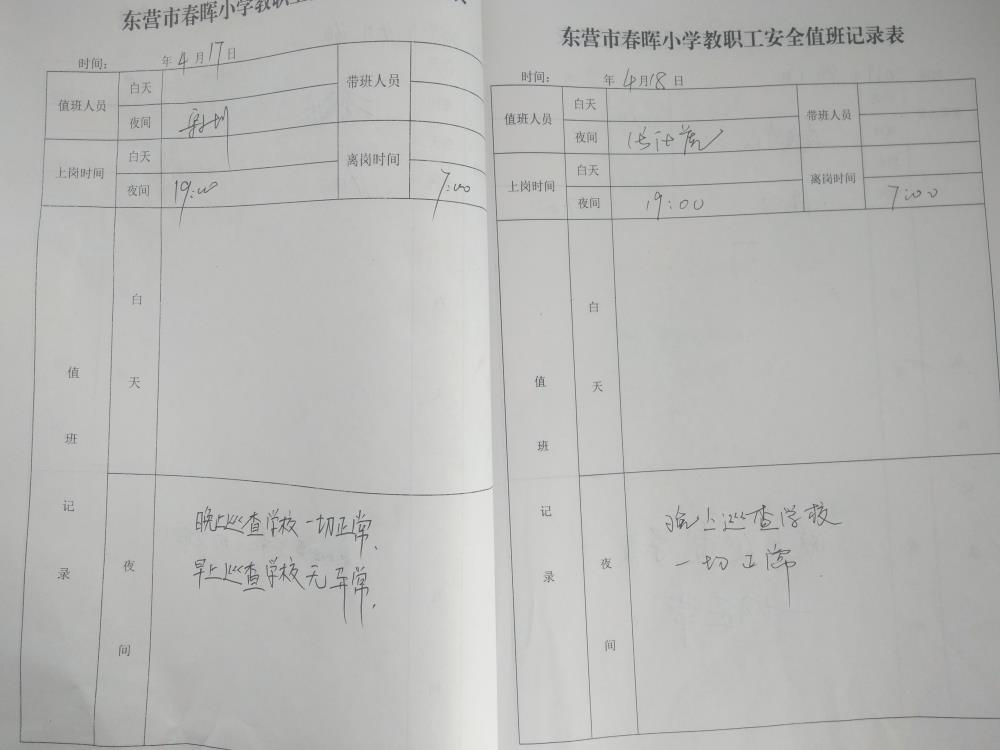 东营市春晖小学教职
时间： 年4月17日
值班人员 白天 带班人员
夜间
上岗时间 白天 离岗时间
夜间 19:00 7:00
值班记录
白天
夜间
晚上巡查学校一切正常.
早上巡查学校无异常.
东营市春晖小学教职工安全值班记录表
时间： 年4月18日
值班人员 白天 带班人员
夜间
上岗时间 白天 离岗时间
夜间 19:00 7:00
值班记录
白天
夜间
晚上巡查学校
一切正常